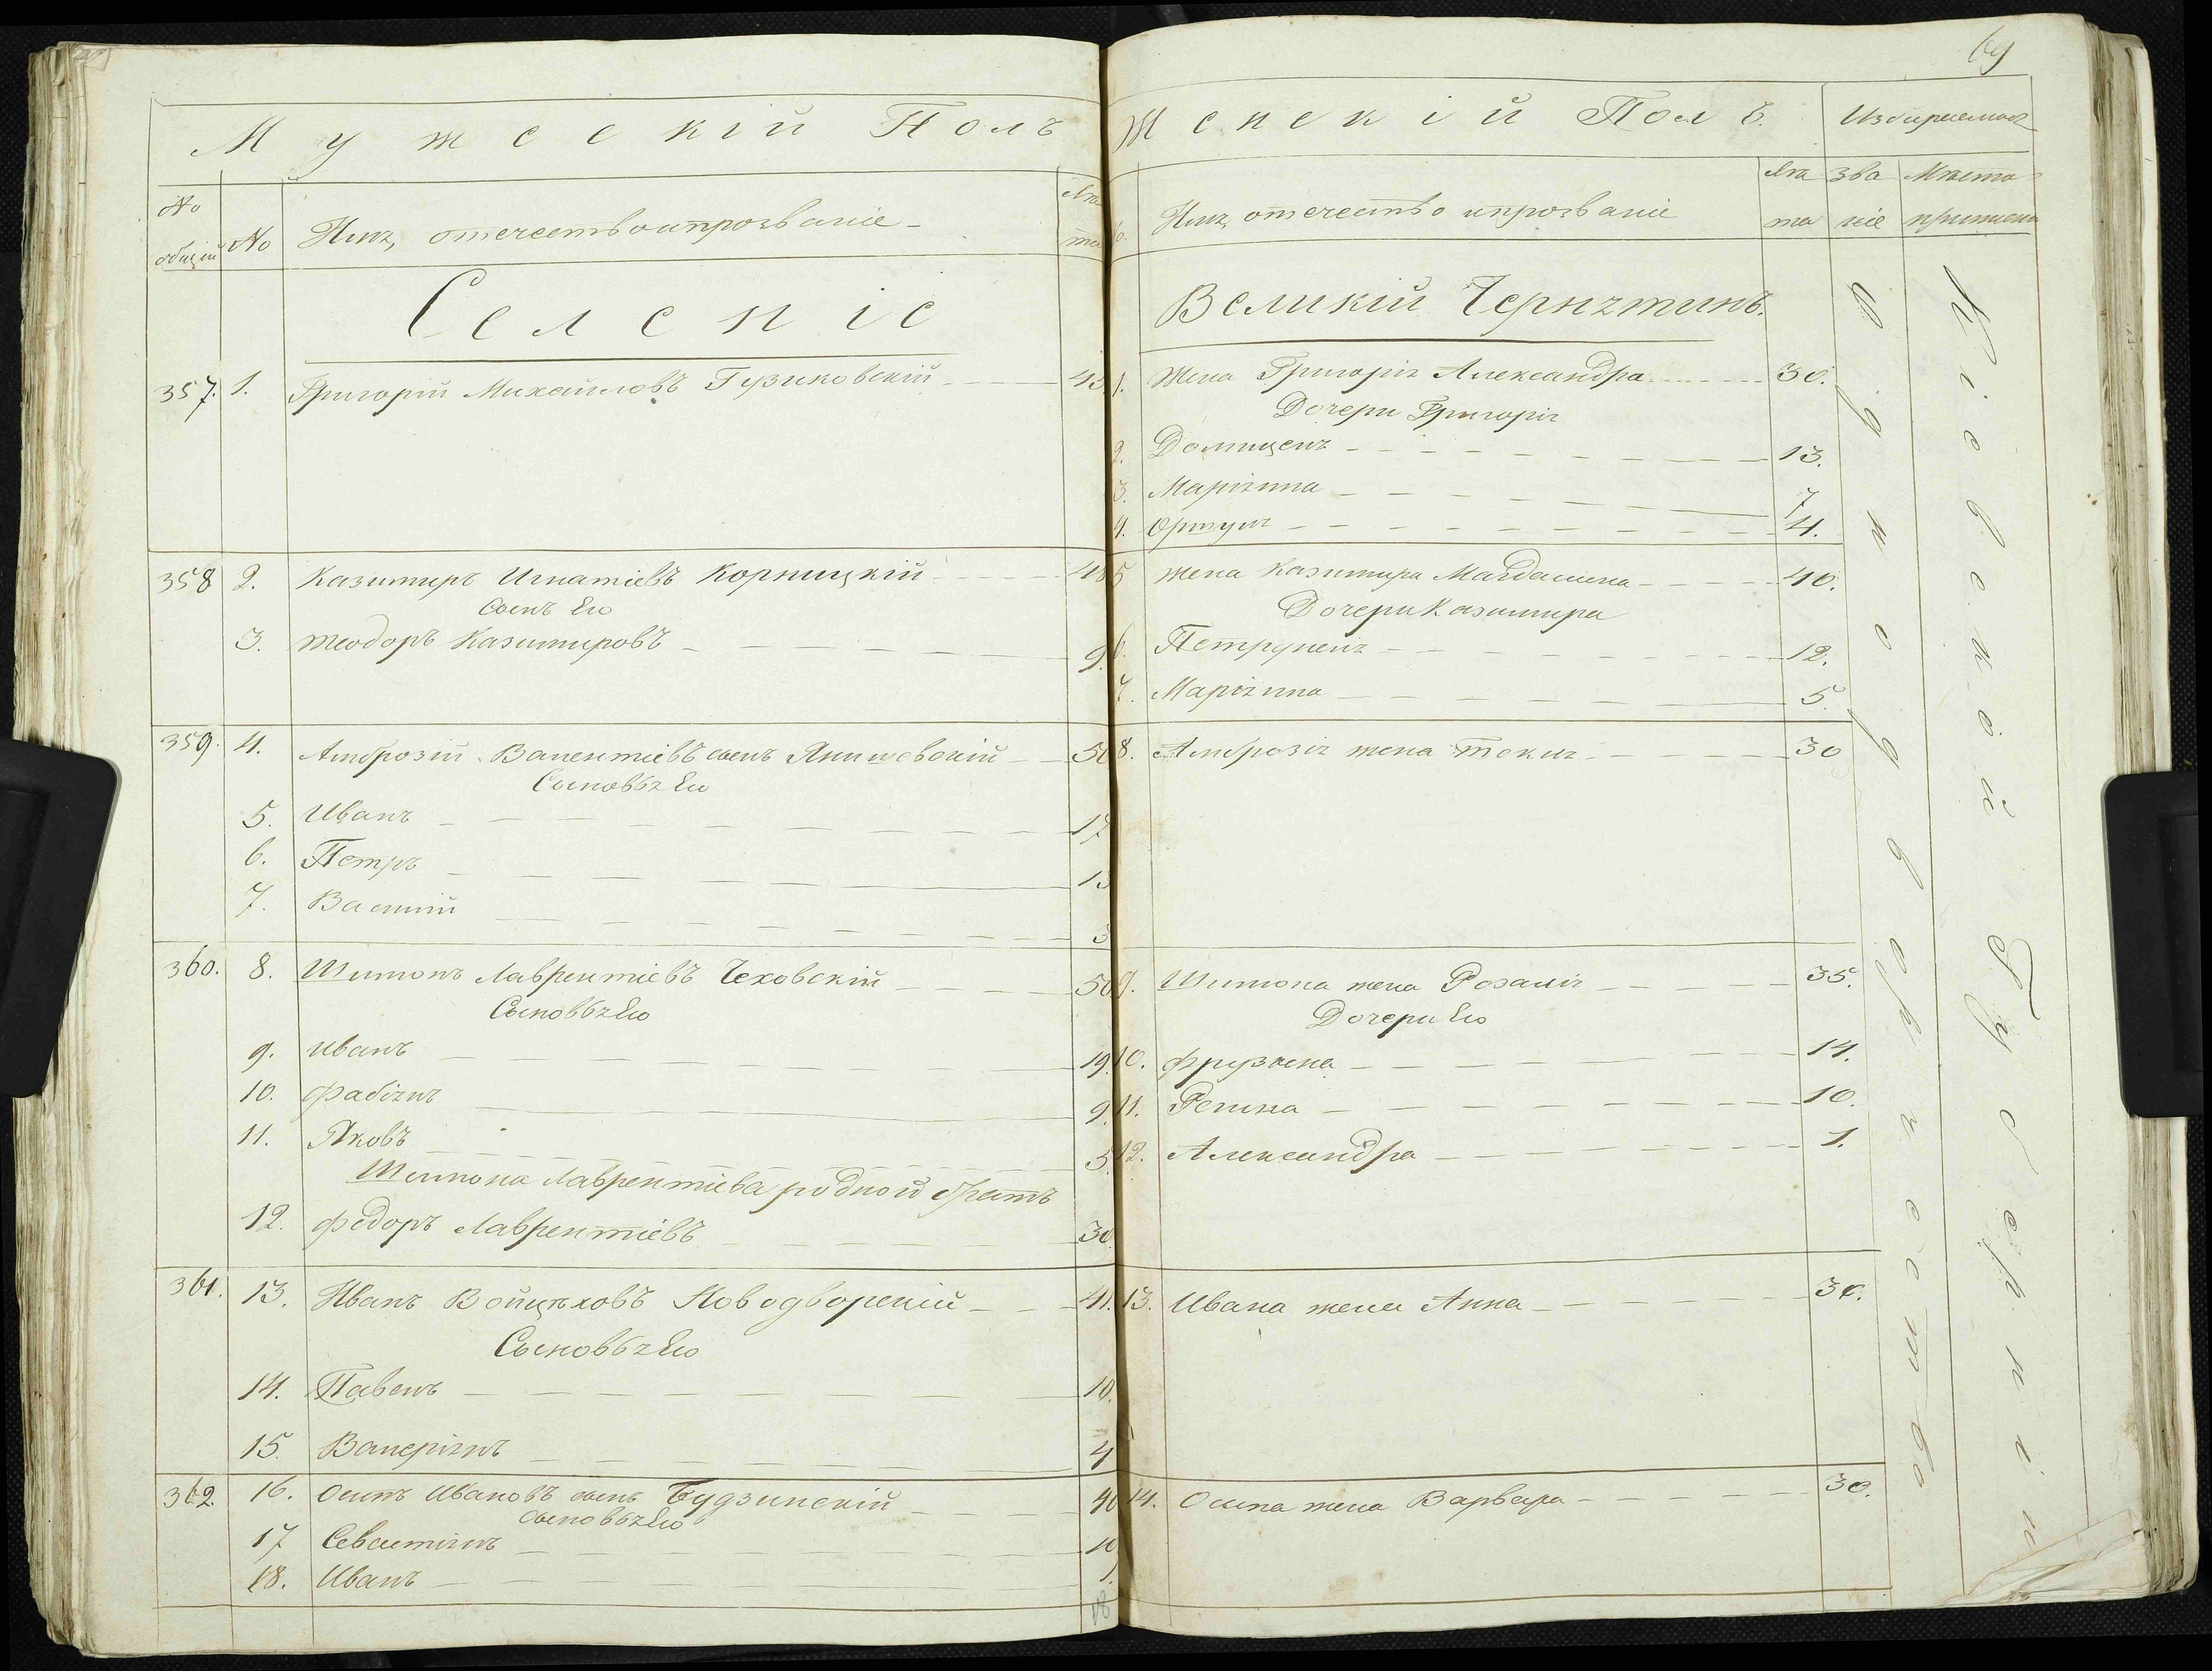 69
Мужескій Полъ
№ общій
№
Имя, отечество и прозваніе
Лѣта
Селеніе
357. 1. Григорій Михайловъ Гузиковскій
358 2. Казимиръ Игнатіевъ Корницкій
Сынъ Его
3. Теодоръ Казимировъ 9.
359. 4. Амброзій Валентіевъ сынъ Янишевскій 50
Сыновья Его
5. Иванъ 17
6. Петръ 13
7. Василій 3
360. 8. Шимонъ Лаврентіевъ Чеховскій 50
Сыновья Его
9. Иванъ 19.
10. Фабіянъ 9.
11. Яковъ 5.
Шимона Лаврентіева родной братъ
12. Федоръ Лаврентіевъ 30.
361. 13. Иванъ Войцѣховъ Новодворскій 41.
Сыновья Его
14. Павелъ 10.
15. Валеріянъ 4
362. 16. Осипъ Ивановъ сынъ Будзинскій 40
Сыновья Его
17 Севастіянъ 10
18. Иванъ 1.
18
Женскій Полъ.
Избираемое
Имя, отечество и прозваніе
Лѣта
Званіе
Мѣсто приписки
Великій Чернятинъ.
1. Жена Григорія Александра 30.
Дочери Григорія
2. Домицеля 13.
3. Маріянна 7
4. Оршуля 4.
5 Жена Казимира Магдалина 40.
Дочери Казимира
6. Петрунеля 12.
7. Маріянна 5.
8. Амброзія жена Текля 30
9. Шимона жена Розалія 35.
Дочери Его
10. Фрузына 14.
11. Регина 10.
12. Александра 1.
13. Ивана жена Анна 30.
14. Осипа жена Варвара 30.
Однодворчество
Кіевской Губерніи